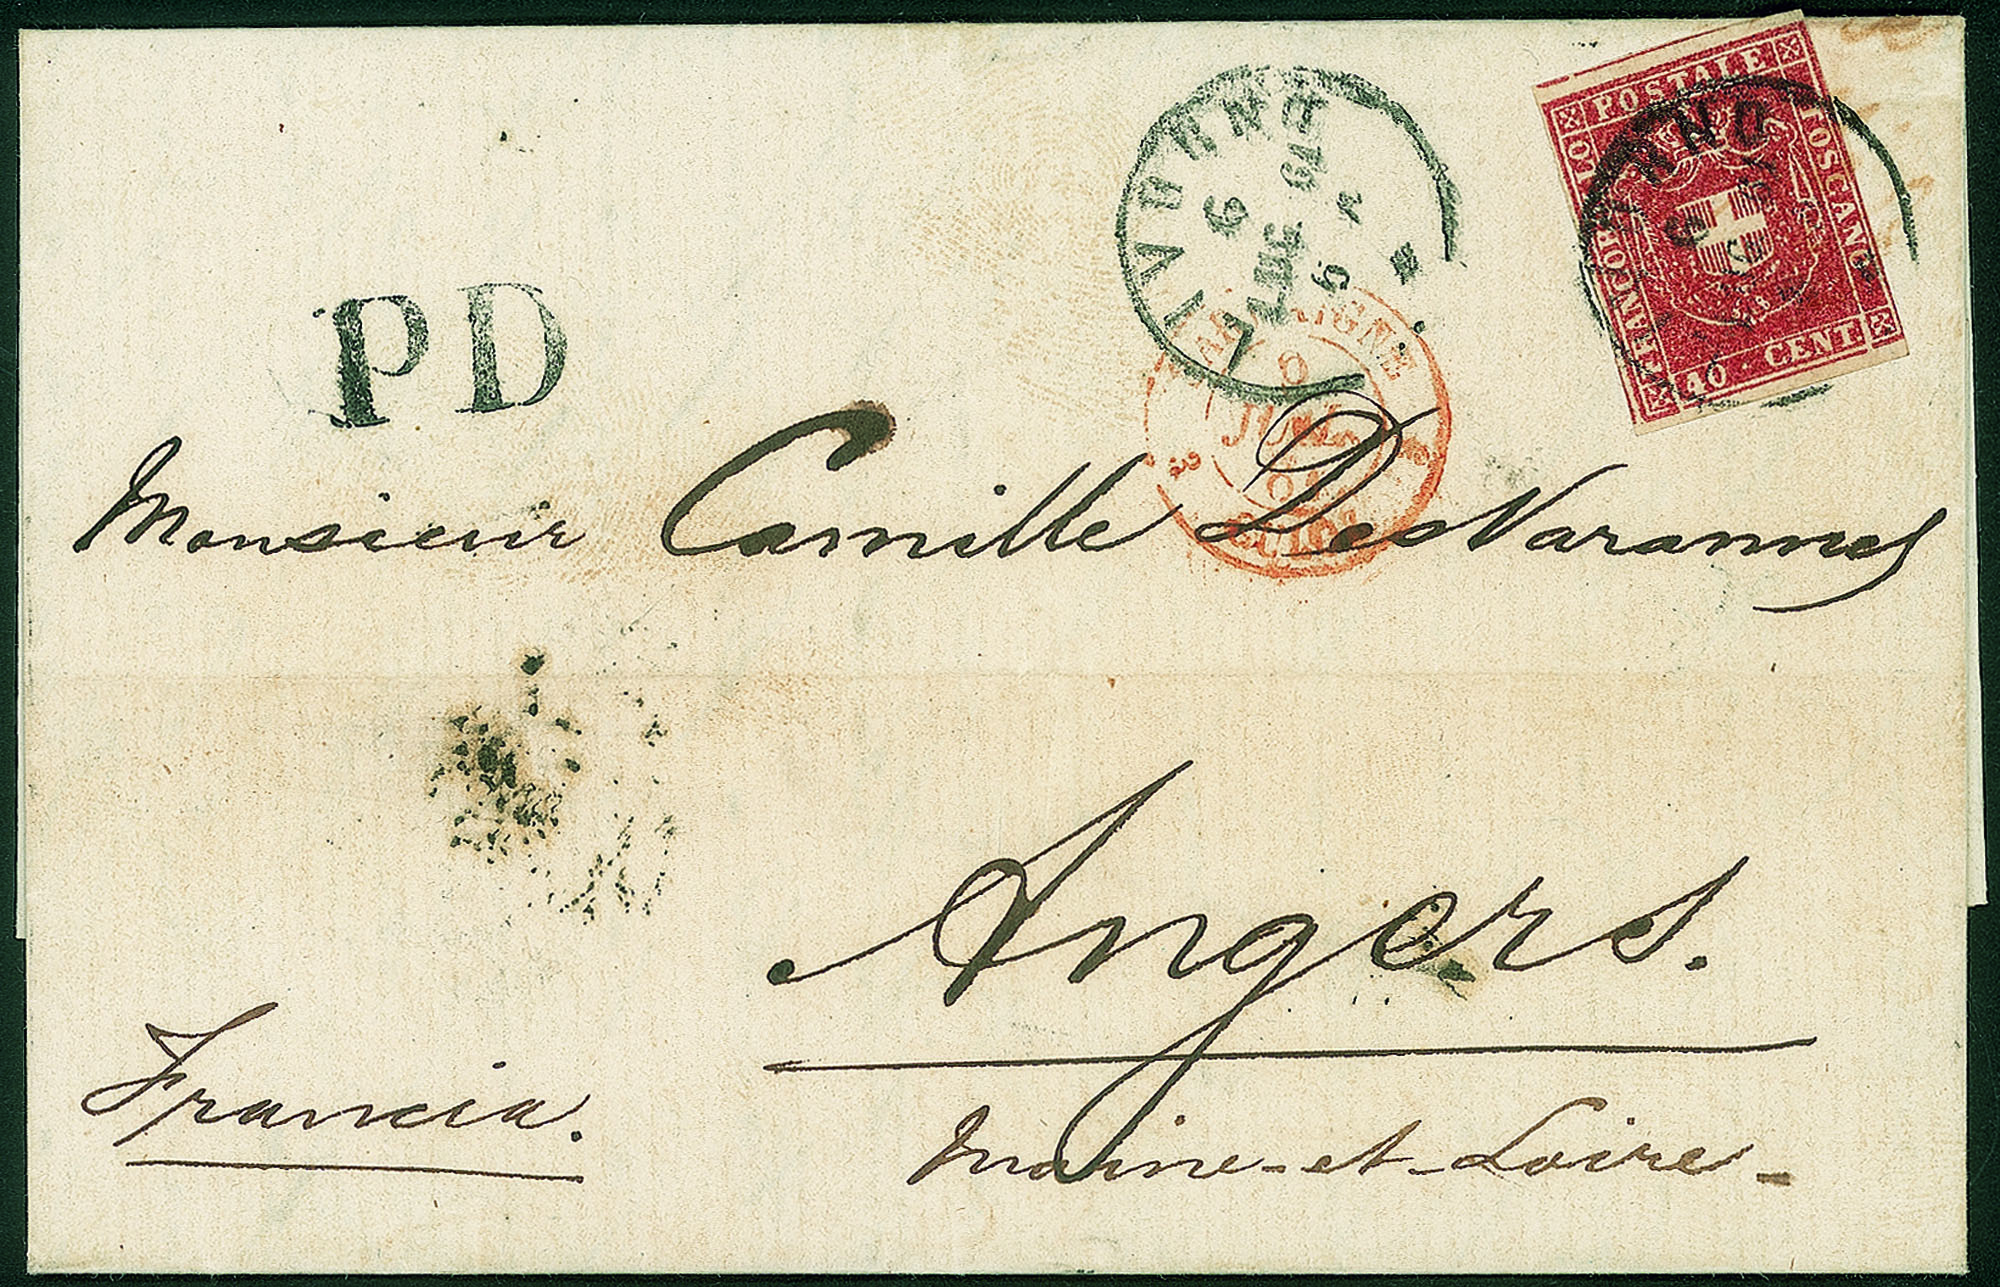 FRANCOBOLLO POSTALE TOSCANO
40 . CENT
LIVORNO
6 LUG 61
RNO
SARDAIGNE
8
JUIL
61
CULOZ
PD
Monsieur Camille DesVarannes
Angers.
Francia.
Maine-et-Loire-